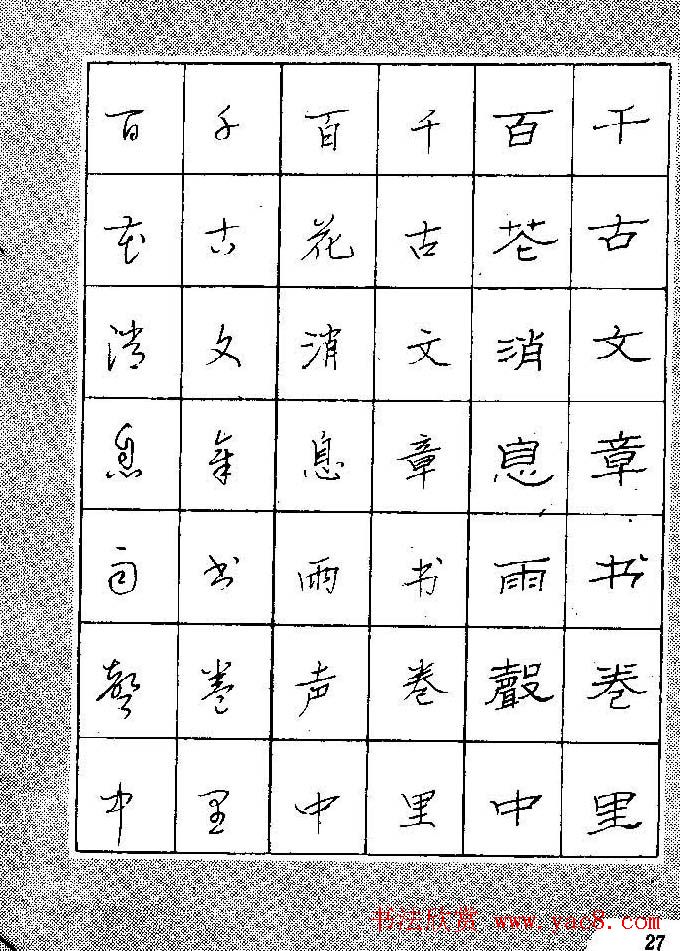 千古文章书卷里
百花消息雨聲中
千古文章书卷里
百花消息雨声中
千古文章书卷里
百花消息雨聲中
书法欣赏 www.yac8.com
27